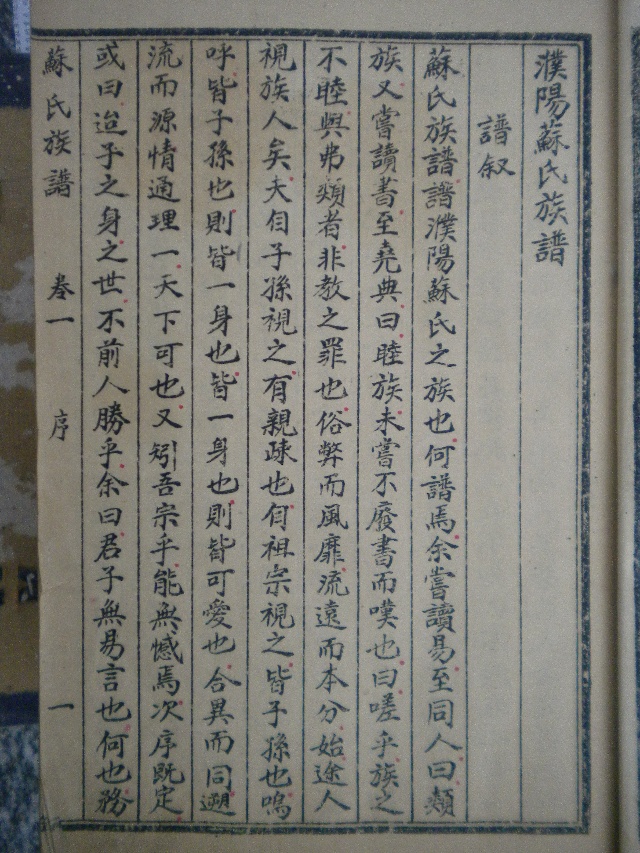 濮陽蘇氏族譜
譜叙
蘇氏族譜譜濮陽蘇氏之族也何譜焉余嘗讀易至同人曰類
族又嘗讀書至堯典曰睦族未嘗不廢書而嘆也曰嗟乎族之
不睦與弗類者非教之罪也俗弊而風靡流遠而本分始途人
視族人矣夫自子孫視之有親疎也自祖宗視之皆子孫也嗚
呼皆子孫也則皆一身也皆一身也則皆可愛也合異而同遡
流而源情通理一天下可也又矧吾宗乎能無憾焉次序既定
或曰迨子之身之世不前人勝乎余曰君子無易言也何也務
蘇氏族譜 卷一 序 一